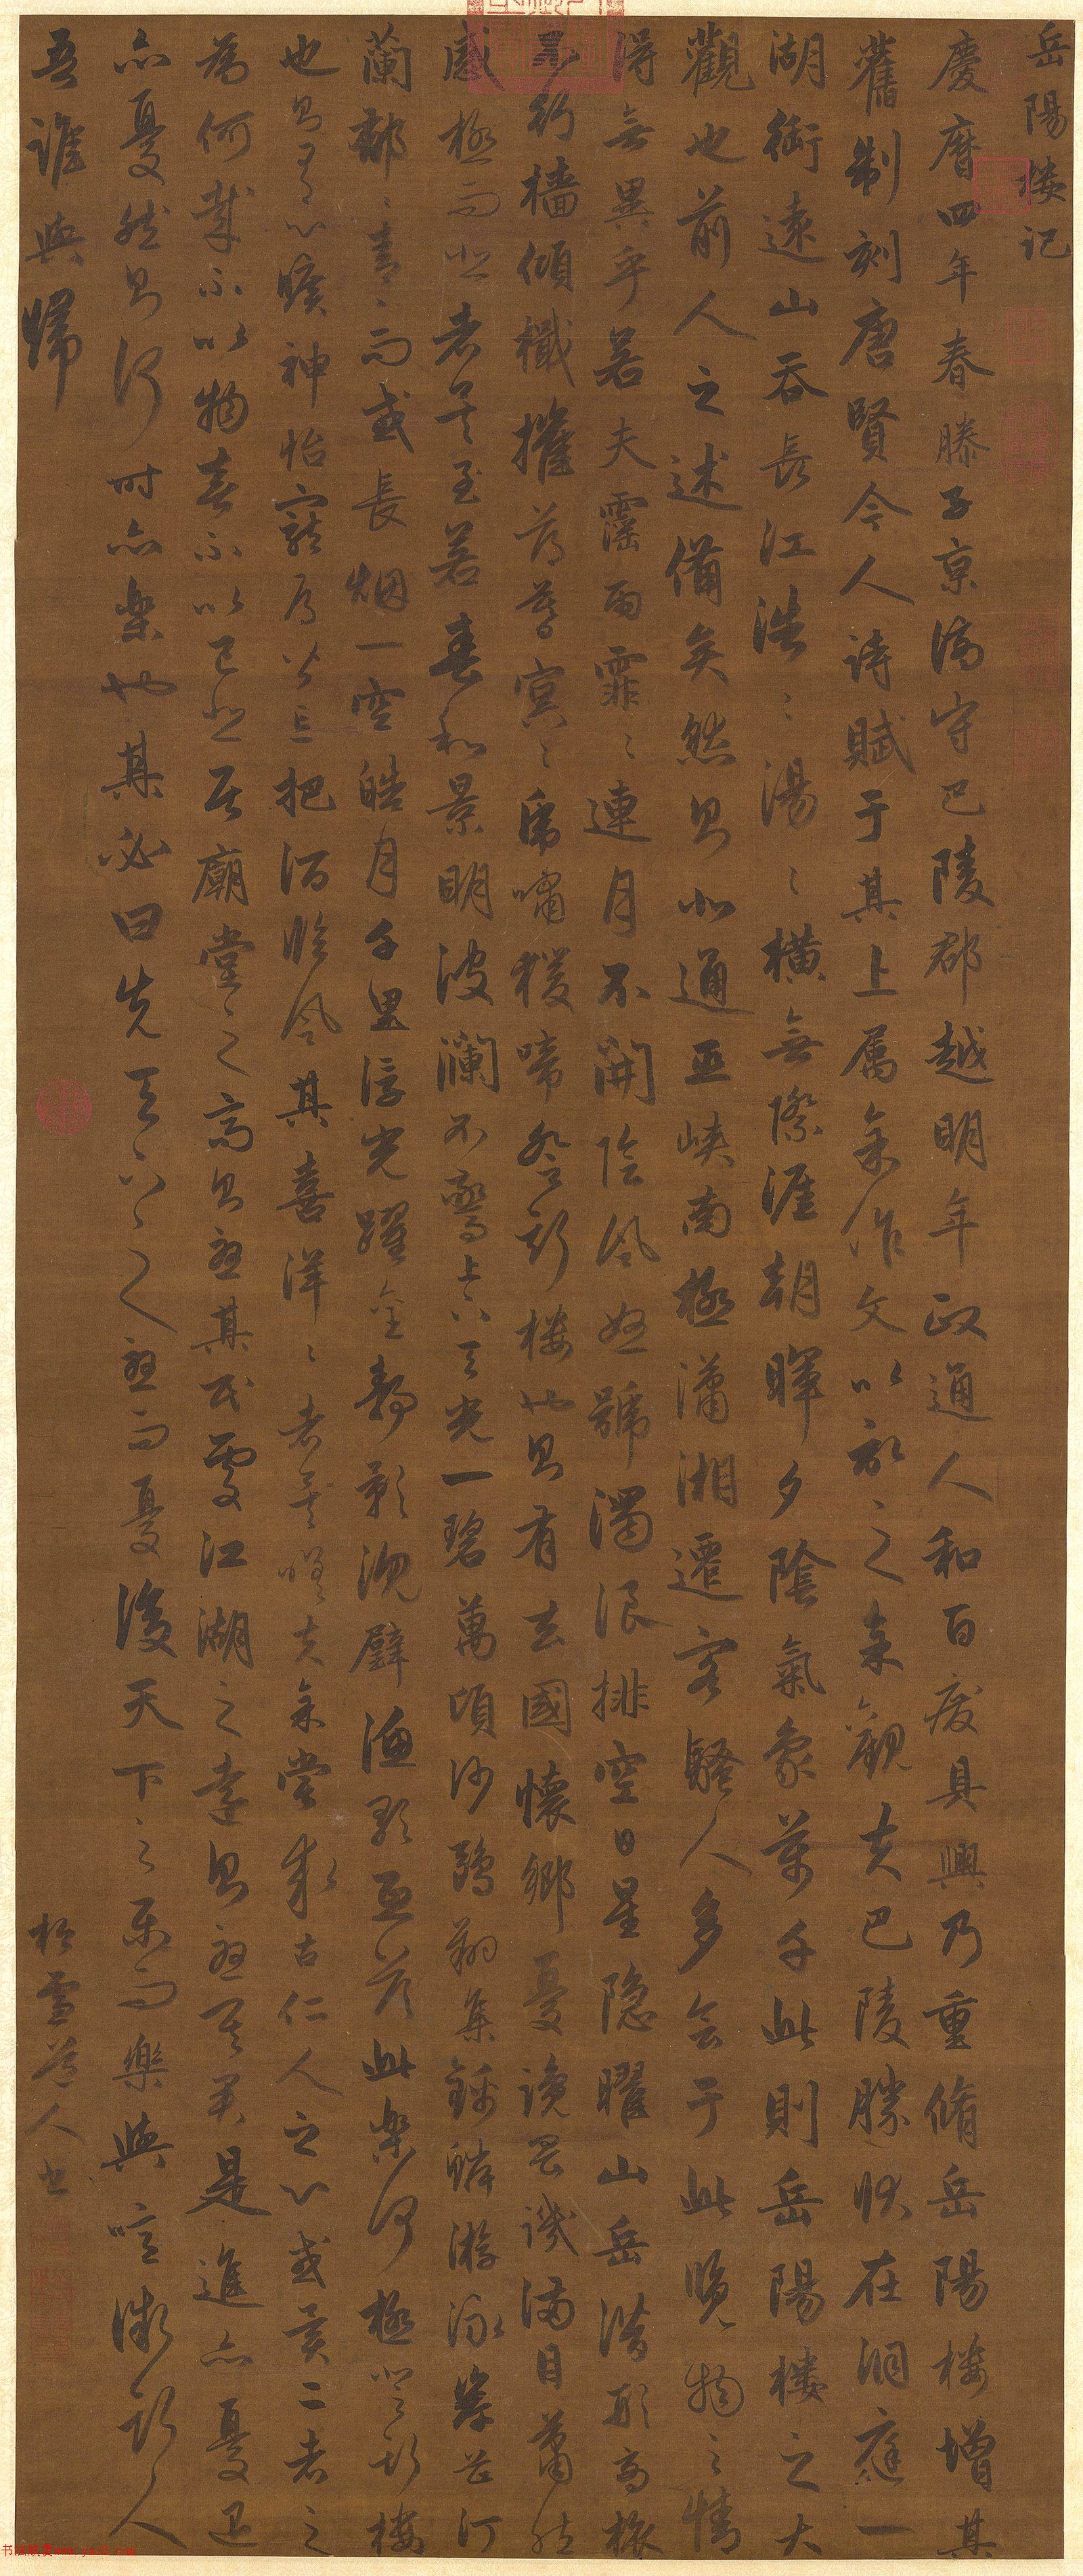 岳陽楼记
慶曆四年春滕子京謫守巴陵郡越明年政通人和百廢具興乃重脩岳陽楼增其
舊制刻唐賢今人诗賦于其上属余作文以記之余觀夫巴陵勝狀在洞庭一
湖銜遠山吞長江浩〻湯〻橫無際涯朝暉夕陰氣象萬千此則岳陽樓之大
觀也前人之述備矣然則北通巫峡南極瀟湘遷客騷人多会于此览物之情
得無異乎若夫霪雨霏〻連月不開陰風怒號濁浪排空日星隐曜山岳潜形商旅
不行檣傾檝摧薄暮冥〻虎嘯猨啼登斯楼也則有去國懷鄉憂讒畏譏滿目蕭然
感極而悲者矣至若春和景明波瀾不驚上下天光一碧萬頃沙鷗翔集錦鳞游泳岸芷汀
蘭郁〻青〻而或長烟一空皓月千里浮光躍金静影沉璧漁歌互答此樂何極登斯楼
也則有心曠神怡寵辱皆忘把酒临风其喜洋〻者矣嗟夫余尝求古仁人之心或異二者之
為何哉不以物喜不以己悲居廟堂之高則憂其民處江湖之遠則憂其君是進亦憂退
亦憂然則何时亦樂也其必曰先天下之憂而憂後天下之樂而樂與噫微斯人
吾誰與歸
松雪道人书